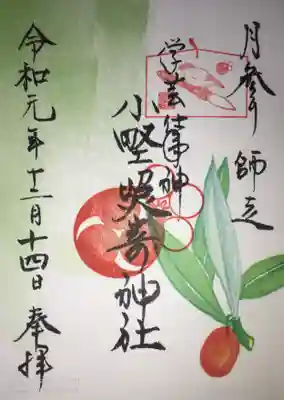 月参り 師走
学芸精神
小野照崎神社
令和元年十二月十四日 奉拝